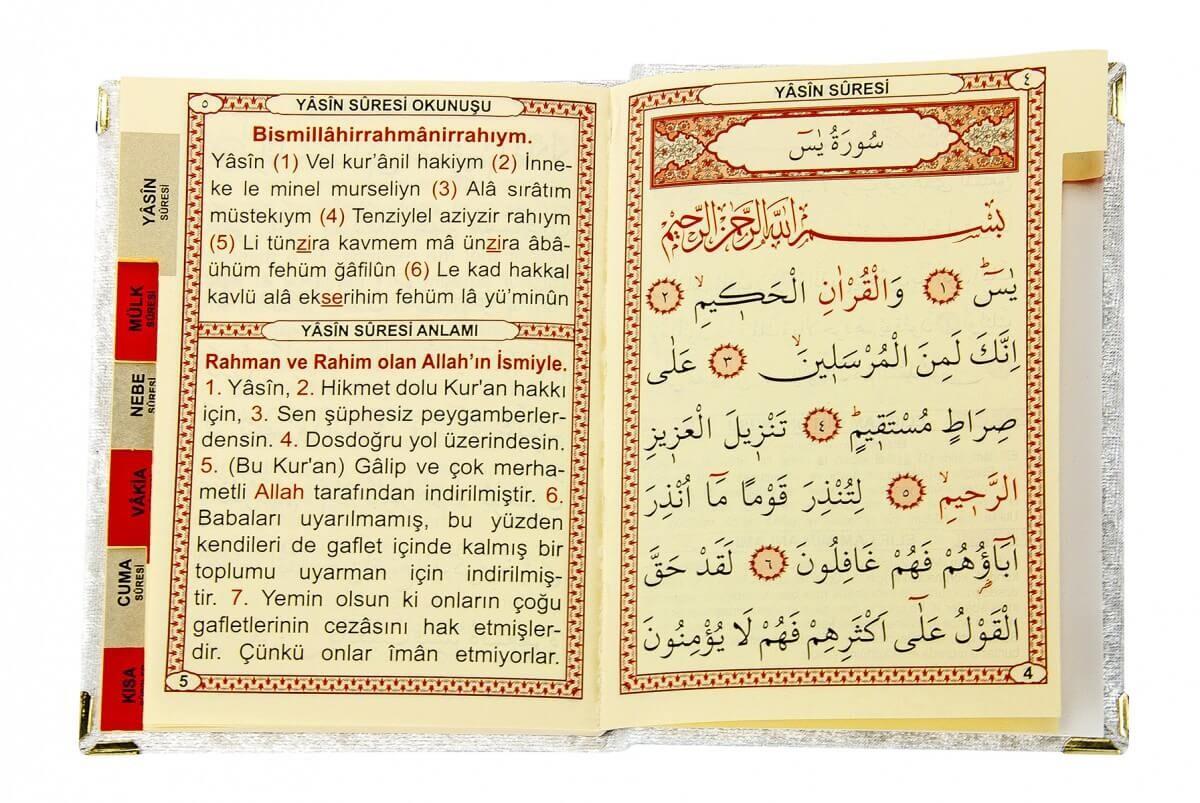 ٥
YÂSİN SÛRESİ OKUNUŞU
Bismillâhirrahmânirrahıym.
Yâsîn (1) Vel kur’ânil hakiym (2) İnne-
ke le minel murseliyn (3) Alâ sırâtım
müstekıym (4) Tenziylel aziyzir rahıym
(5) Li tünzira kavmem mâ ünzira âbâ-
ühüm fehüm ğafilûn (6) Le kad hakkal
kavlü alâ ekserihim fehüm lâ yü’minûn
YÂSİN SÛRESİ ANLAMI
Rahman ve Rahim olan Allah’ın İsmiyle.
1. Yâsîn, 2. Hikmet dolu Kur'an hakkı
için, 3. Sen şüphesiz peygamberler-
densin. 4. Dosdoğru yol üzerindesin.
5. (Bu Kur'an) Gâlip ve çok merha-
metli Allah tarafından indirilmiştir. 6.
Babaları uyarılmamış, bu yüzden
kendileri de gaflet içinde kalmış bir
toplumu uyarman için indirilmiş-
tir. 7. Yemin olsun ki onların çoğu
gafletlerinin cezâsını hak etmişler-
dir. Çünkü onlar îmân etmiyorlar.
5
YÂSİN
SÛRESİ
MÜLK
SÛRESİ
NEBE
SÛRESİ
VÂKIA
CUMA
SÛRESİ
KISA
YÂSİN SÛRESİ
٤
سُورَةُ يٰسٓ
بِسْــــمِ اللّٰهِ الرَّحْمٰنِ الرَّحِيمِ
يٰسٓ ۚ ﴿١﴾ وَالْقُرْاٰنِ الْحَك۪يمِۙ ﴿٢﴾
اِنَّكَ لَمِنَ الْمُرْسَل۪ينَۙ ﴿٣﴾ عَلٰى
صِرَاطٍ مُسْتَق۪يمٍۜ ﴿٤﴾ تَنْز۪يلَ الْعَز۪يزِ
الرَّح۪يمِۙ ﴿٥﴾ لِتُنْذِرَ قَوْمًا مَٓا اُنْذِرَ
اٰبَٓاؤُ۬هُمْ فَهُمْ غَافِلُونَ ﴿٦﴾ لَقَدْ حَقَّ
الْقَوْلُ عَلٰٓى اَكْثَرِهِمْ فَهُمْ لَا يُؤْمِنُونَ
4